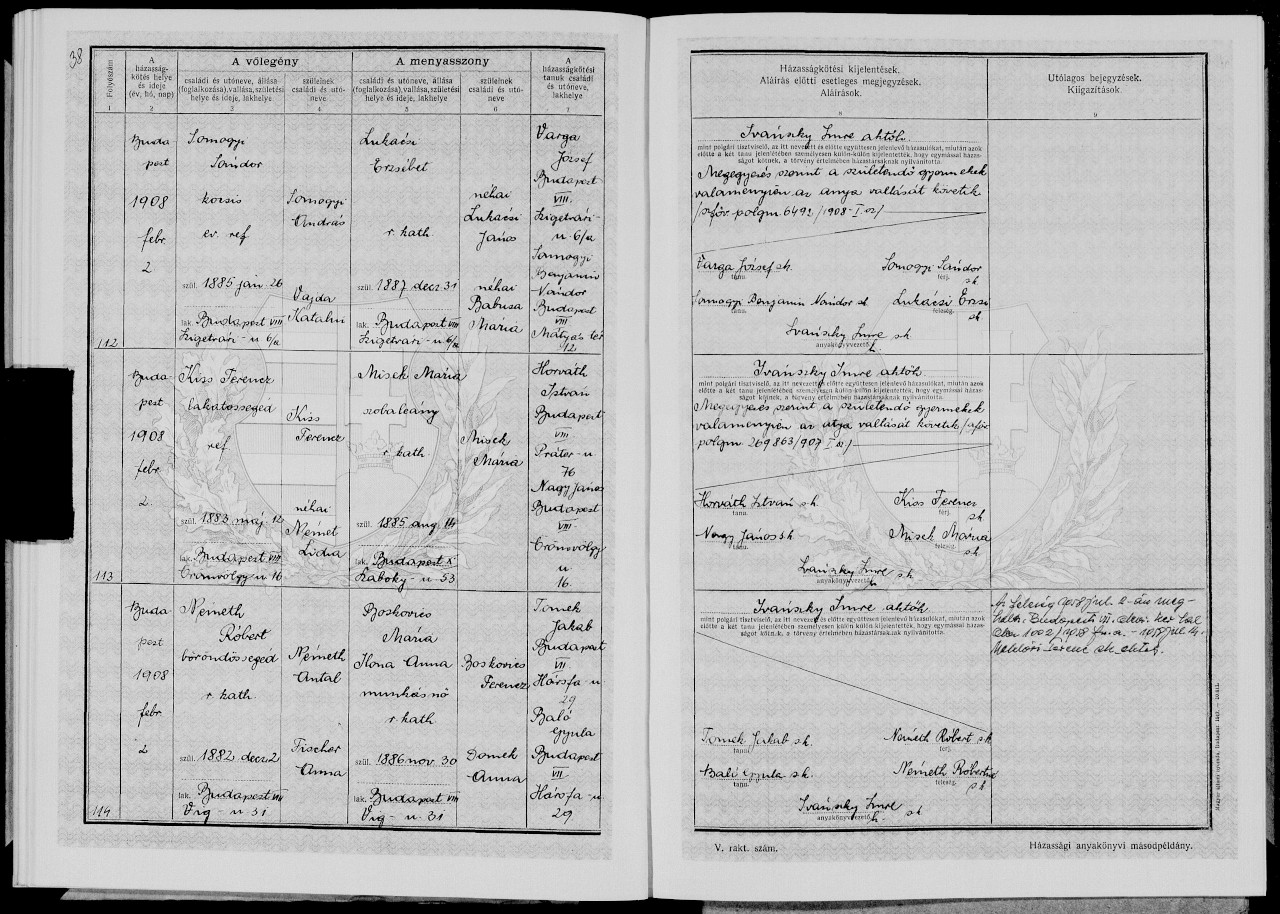 38
Folyószám
A házasság-
kötés helye
és ideje
(év, hó, nap)
A vőlegény
családi és utóneve, állása
(foglalkozása), vallása, születési
helye és ideje, lakhelye
szüleinek
családi és utó-
neve
A menyasszony
családi és utóneve, állása
(foglalkozása), vallása, születési
helye és ideje, lakhelye
szüleinek
családi és utó-
neve
A
házasságkötési
tanuk családi
és utóneve,
lakhelye
1 2 3 4 5 6 7
Buda
pest
1908
febr.
2
Somogyi
Sándor
kocsis
ev. ref
szül. 1885 jan. 26
lak. Budapest VIII
Szigetvári-u 6/a
Somogyi
András
Vajda
Katalin
Lukácsi
Erzsébet
r. kath.
szül. 1887 decz 31
lak. Budapest VIII
Szigetvári-u. 6/a
néhai
Lukácsi
János
néhai
Babusa
Mária
Varga
József
Budapest
VIII.
Szigetvári-
u. 6/a
Somogyi
Benjamin
Nándor
Budapest
VIII
Mátyás tér
12.
112
Buda-
pest
1908
febr.
2.
Kiss Ferencz
lakatossegéd
ref
szül. 1883 máj. 12
lak. Budapest VIII
Örömvölgy u 16
Kiss
Ferencz
néhai
Német
Lidia
Misek Mária
szobaleány
r kath.
szül. 1885 aug. 14
lak. Budapest X
Kaboky-u 53
Misek
Mária
Horváth
István
Budapest
VIII
Práter-u
76
Nagy János
Budapest
VIII.
Örömvölgy
u
16.
113
Buda
pest
1908
febr.
2
Németh
Róbert
böröndössegéd
r kath.
szül. 1882 decz 2
lak. Budapest VIII
Vig-u 31
Németh
Antal
Fischer
Anna
Boskovics
Mária
Ilona Anna
munkásnő
r kath
szül. 1886 nov. 30
lak. Budapest VIII
Vig-u. 31
Boskovics
Ferencz
Domek
Anna
Tomek
Jakab
Budapest
VII.
Hársfa-u
29
Baló
Gyula
Budapest
VII
Hársfa-u
29
114
Házasságkötési kijelentések.
Aláírás előtti esetleges megjegyzések.
Aláírások.
8
Utólagos bejegyzések.
Kiigazítások.
9
Ivánszky Imre ahtóh.
mint polgári tisztviselő, az itt nevezett és előtte együttesen jelenlevő házasulókat, miután azok
előtte a két tanu jelenlétében személyesen külön-külön kijelentették, hogy egymással házas-
ságot kötnek, a törvény értelmében házastársaknak nyilvánította.
Megegyezés szerint a születendő gyermekek
valamennyien az anya vallását követik
/szföv. polgm 6492/1908-I. sz/
Varga József sk.
tanu.
Somogyi Sándor
férj.
Somogyi Benjamin Nándor sk
tanu.
Lukácsi Erzsi
feleség.
sk
Ivánszky Imre sk
anyakönyvvezető h.
Ivánszky Imre ahtóh.
mint polgári tisztviselő, az itt nevezett és előtte együttesen jelenlevő házasulókat, miután azok
előtte a két tanu jelenlétében személyesen külön-külön kijelentették, hogy egymással házas-
ságot kötnek, a törvény értelmében házastársaknak nyilvánította.
Megegyezés szerint a születendő gyermekek
valamennyien az atya vallását követik /szföv
polgm 269863/907 I. sz/
Horváth István sk
tanu.
Kiss Ferencz
férj.
sk
Nagy János sk
tanu.
Misek Mária
feleség.
sk
Ivánszky Imre sk
anyakönyvvezető h.
Ivánszky Imre ahtóh
mint polgári tisztviselő, az itt nevezett és előtte együttesen jelenlevő házasulókat, miután azok
előtte a két tanu jelenlétében személyesen külön-külön kijelentették, hogy egymással házas-
ságot kötnek, a törvény értelmében házastársaknak nyilvánította.
Tomek Jakab sk.
tanu.
Németh Róbert sk
férj.
Baló Gyula sk.
tanu.
Németh Róbertné
feleség.
sk
Ivánszky Imre sk
anyakönyvvezető h.
A feleség jul. 2-án meg-
halt. Budapest VII. ker
1002/1958
V. rakt. szám.
Házassági anyakönyvi másodpéldány.